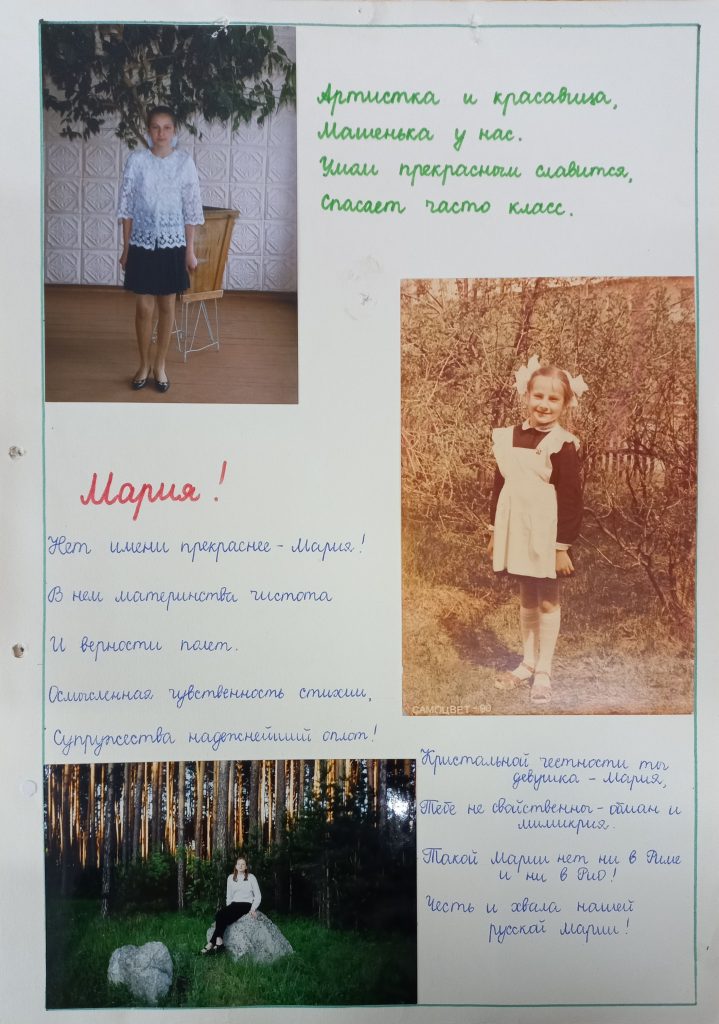 Артистка и красавица,
Машенька у нас.
Умом прекрасным славится,
Спасает часто класс.
Мария!
Нет имени прекраснее - Мария!
В нем материнства чистота
И верности полет.
Осмысленная чувственность стихии,
Супружества надежнейший оплот!
САМОЦВЕТ - 90
Кристальной честности ты
девушка - Мария,
Тебе не свойственны - обман и
мимикрия.
Такой Марии нет ни в Риме
и ни в Рио!
Честь и хвала нашей
русской Марии!